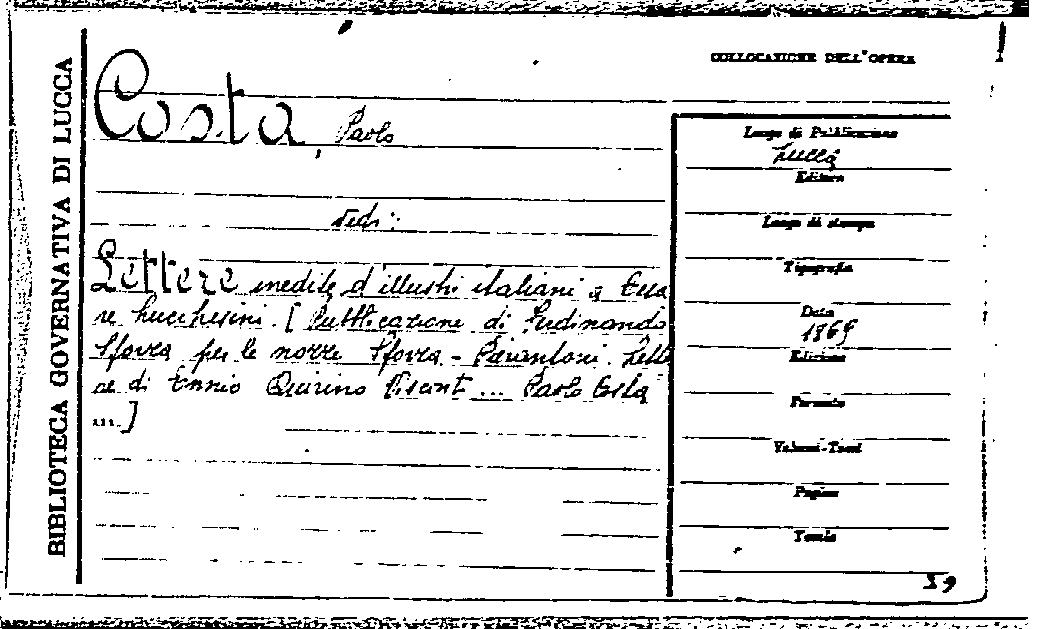 BIBLIOTECA GOVERNATIVA DI LUCCA
COLLOCAZIONE DELL'OPERA
Costa, Paolo
Vedi:
Lettere inedite d'illustri italiani a
re Lucchesini. [Pubblicazione di Ferdinando
Sforza per le nozze Sforza - Pierantoni. Lette
re di Ennio Quirino Visconti ... Paolo Costa
...]
Luogo di Pubblicazione
Lucca
Editore
Luogo di stampa
Tipografia
Data
1869
Edizione
Formato
Volumi-Tomi
Pagine
Tavole
59